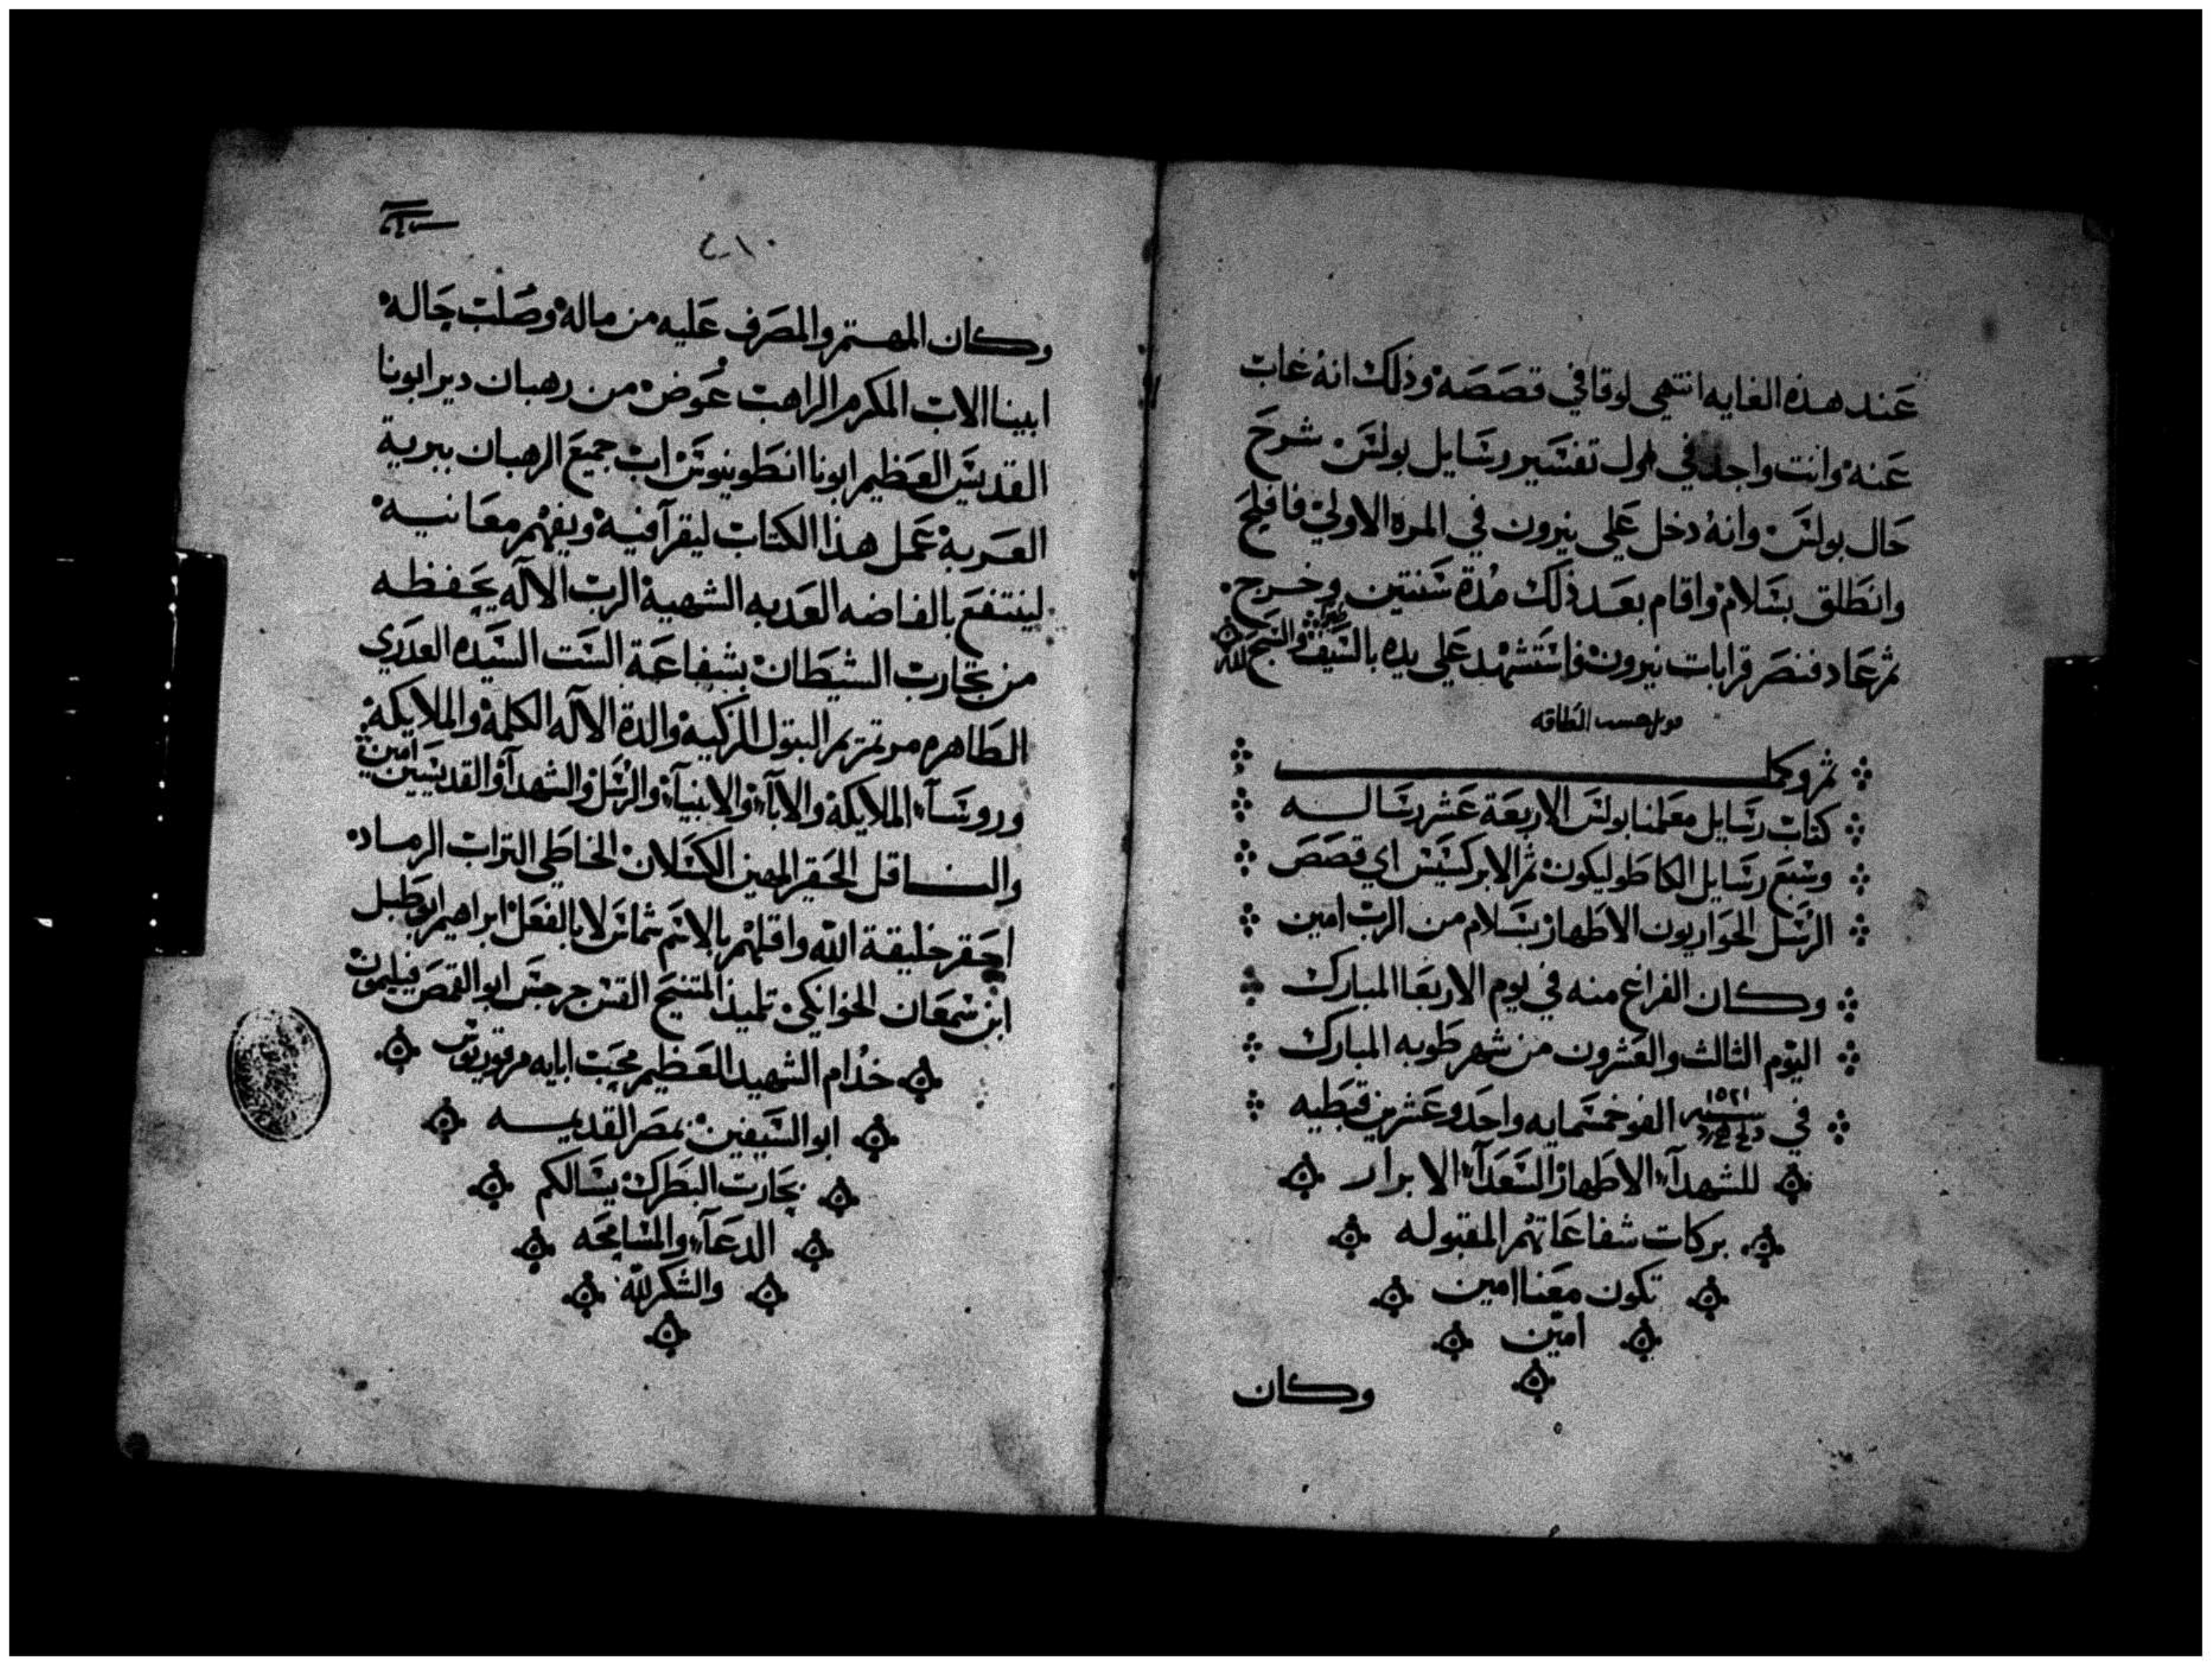 عند هذه الغايه انتهي لوقا في قصصه وذلك انه غاب
عنه وانت واجد في طول تفسير رسايل بولس شرح
حال بولس وانه دخل علي نيرون في المرة الاولي فافلح
وانطلق بسلام واقام بعد ذلك مدة سنتين وخرج
ثم عاد فنصر قرابات نيرون فاستشهد علي يده بالسيف والسبح لله
حسب الطاقه
ثم وكمل
كتاب رسايل معلمنا بولس الاربعة عشر رساله
وسبع رسايل الكاطوليكون ثم الابركسيس اي قصص
الرسل الحواريون الاطهار بسلام من الرب امين
وكان الفراغ منه في يوم الاربعا المبارك
اليوم الثالث والعشرون من شهر طوبه المبارك
في سنه ١٥٢١ الف وخمسمايه واحد وعشرين قبطيه
للشهدآء الاطهار السعدآء الابرار
بركات شفاعاتهم المقبوله
تكون معنا امين
امين
وكان
٢١٠
وكان المهتم والمصرف عليه من ماله وصلب حاله
ابينا الاب المكرم الراهب عوض من رهبان دير ابونا
القديس العظيم ابونا انطونيوس اب جميع الرهبان ببرية
العربة عمل هذا الكتاب ليقرآ فيه ويفهم معانيه
لينتفع بالفاضه العدبه الشهية الرب الاله يحفظه
من تجارب الشيطان بشفاعة الست السيده العدري
الطاهره مرتمريم البتول الزكيه والدة الاله الكلمة والملايكة
وروسآء الملايكة والابآء والانبيآء والرسل والشهدآء والقديسين امين
والناقل الحقير المهين الكسلان الخاطي التراب الرماد
احقر خليقة الله واقلهم بالاسم شماس لا بالفعل ابراهيم ابو طبل
ابن سمعان الخوانكي تلميذ المتنيح القس جرجس ابو القمص فيليمون
خدام الشهيد العظيم محب ابايه مرقوريوس
ابو السيفين بمصر القديمه
بحارت البطرك يسالكم
الدعآء والمسامحه
والشكر لله